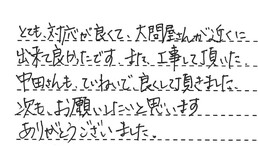 とても対応が良くて、大問屋さんが近くに
出来て良かったです。また、工事して頂いた
中田さんも、ていねいで、良くして頂きました。
次も、お願いしたいと思います
ありがとうございました。